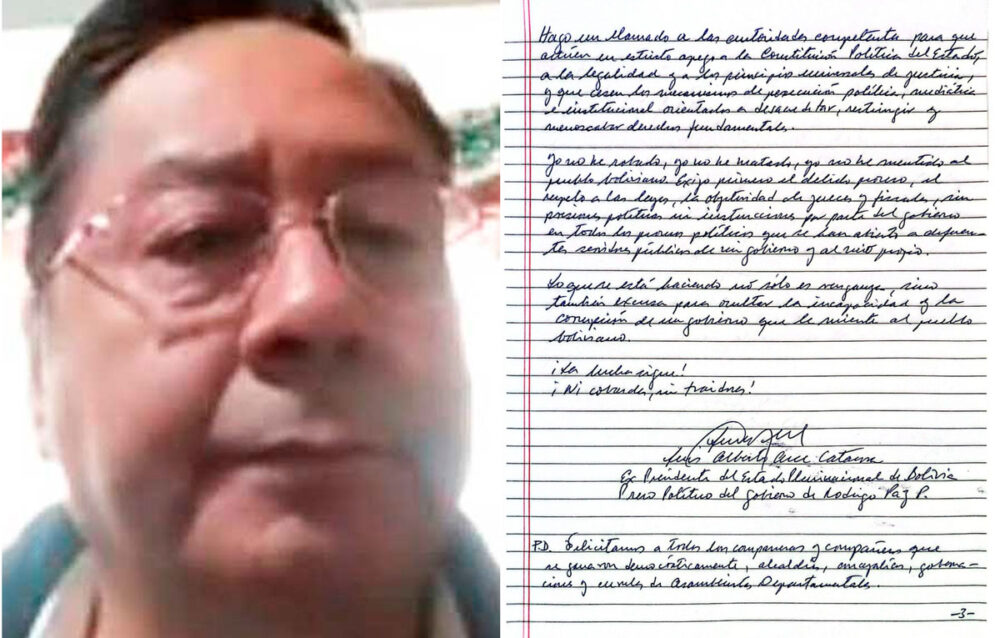 Hago un llamado a las autoridades competentes para que
actúen en estricto apego a la Constitución Política del Estado,
a la legalidad y a los principio universales de justicia,
y que cesen los mecanismos de persecución política, mediática
e institucional orientados a desacreditar, restringir y
menoscabar derechos fundamentales.
Yo no he robado, yo no he matado, yo no he mentido al
pueblo boliviano. Exijo primero el debido proceso, el
respeto a las leyes, la objetividad de jueces y fiscales, sin
presiones políticas ni instrucciones por parte del gobierno
en todos los procesos políticos que se han abierto a diferen-
tes servidores públicos de mi gobierno y al mío propio.
Lo que se está haciendo no sólo es venganza, sino
también excusa para ocultar la incapacidad y la
corrupción de un gobierno que le miente al pueblo
boliviano.
¡La lucha sigue!
¡Ni cobardes, ni traidores!
Luis Alberto Arce Catacora
Ex Presidente del Estado Plurinacional de Bolivia
Preso Político del gobierno de Rodrigo Paz P.
P.D. Felicitamos a todos los compañeras y compañeros que
se ganaron democráticamente, alcaldías, concejalías, goberna-
ciones y curules de Asambleas Departamentales.
-3-